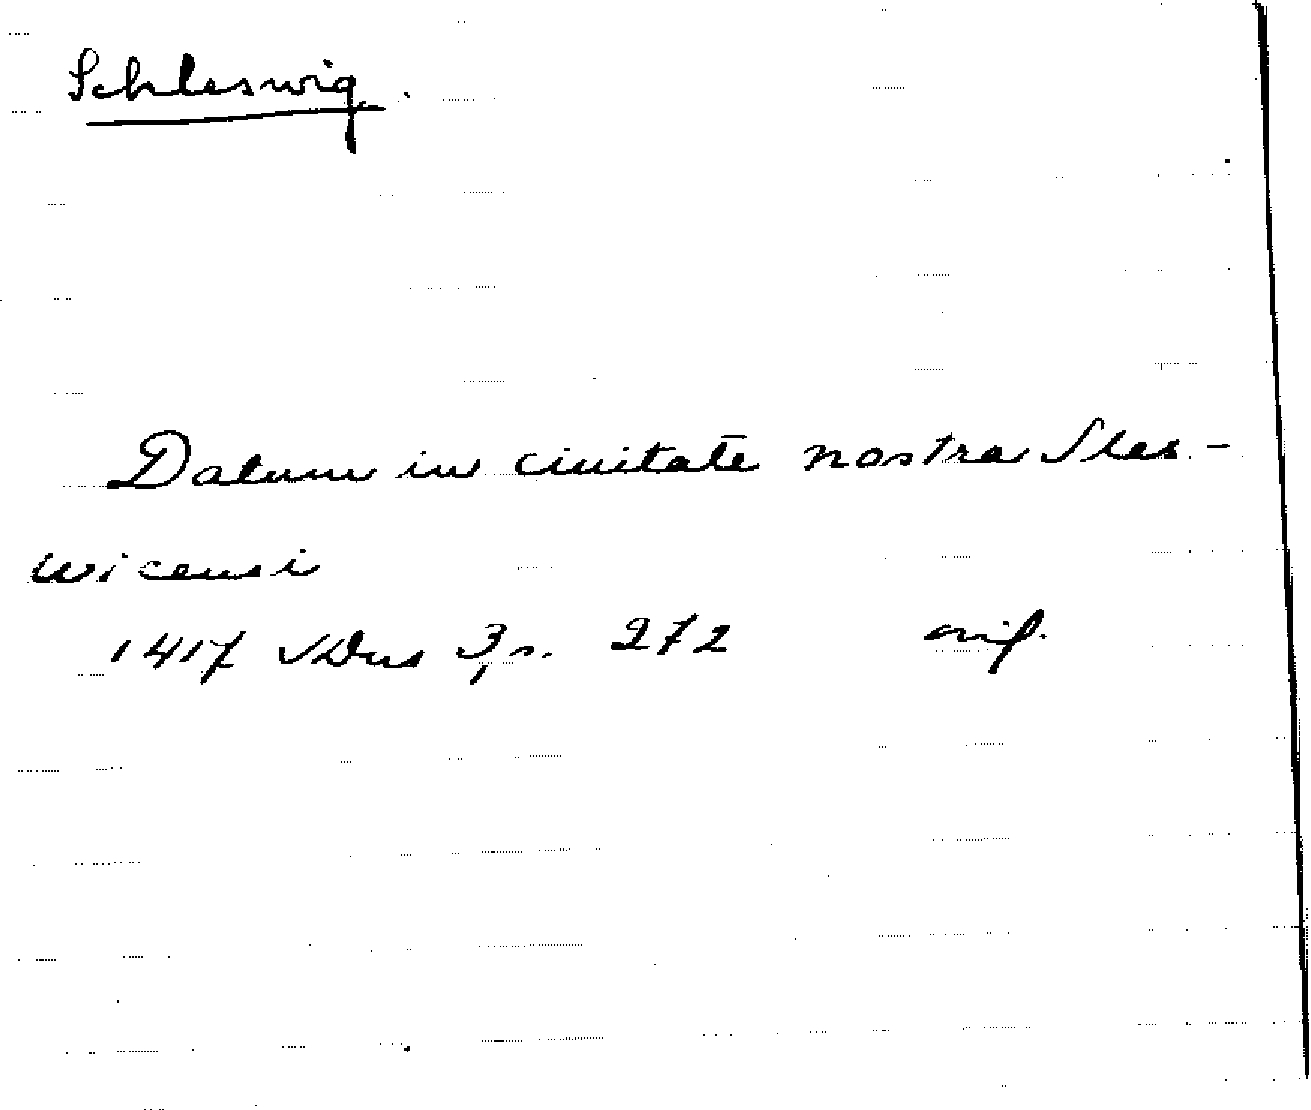 Schleswig.
Datum in ciuitate nostra Sles-
wicensi
1417 SDus 3, s. 272 orig.